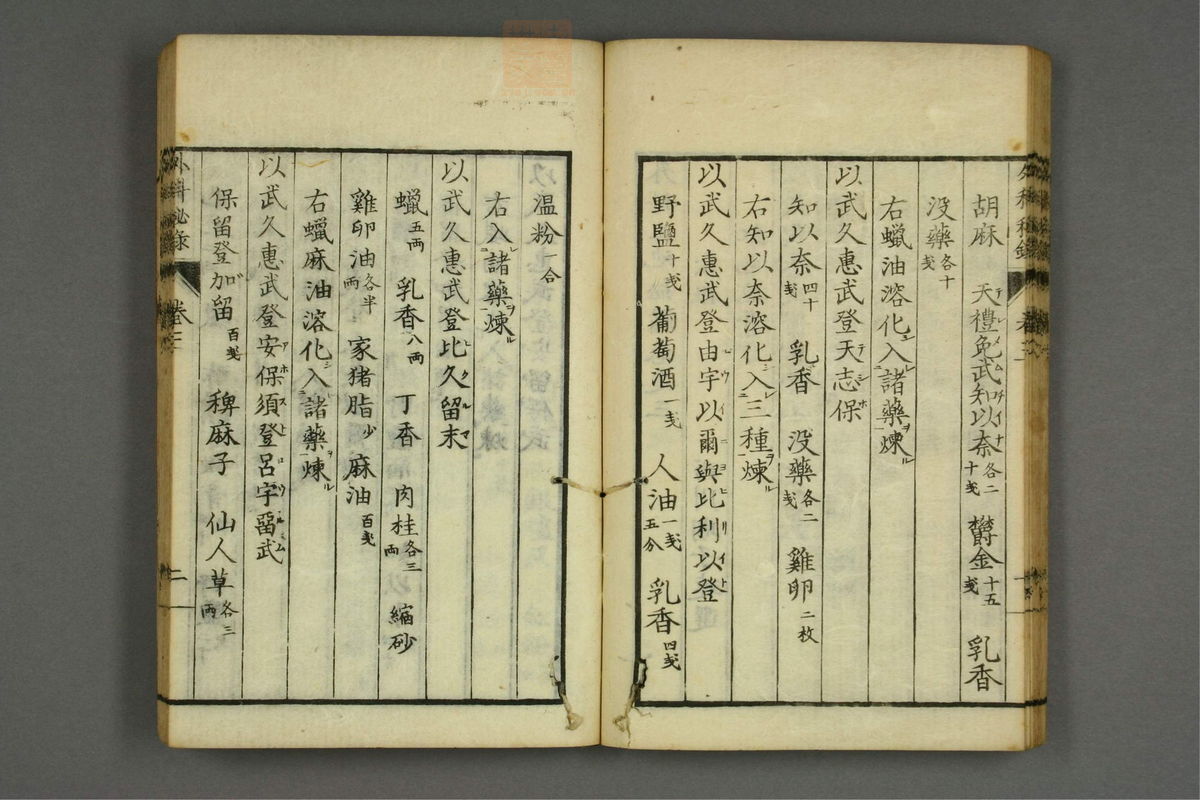 胡麻 天禮免武知以奈各二十戔 欝金十五戔 乳香
没藥各十戔
右蠟油溶化シ入レ諸藥ヲ煉ル
以武久惠武登天志保
知以奈四十戔 乳香 没藥各二戔 雞卵二枚
右知以奈溶化シ入レ三種ヲ煉ル
以武久惠武登由宇以爾與比利以登
野鹽十戔 葡萄酒一戔 人油一戔五分 乳香四戔
温粉一合
右入レ諸藥ヲ煉ル
以武久惠武登比久留末
蠟五兩 乳香八兩 丁香 肉桂各三兩 縮砂
雞卵油各半兩 家猪脂少 麻油百戔
右蠟麻油溶化シ入レ諸藥ヲ煉ル
以武久惠武登安保須登呂宇留武
保留登加留百戔 稗麻子 仙人草各三兩
外科秘錄 卷三 二